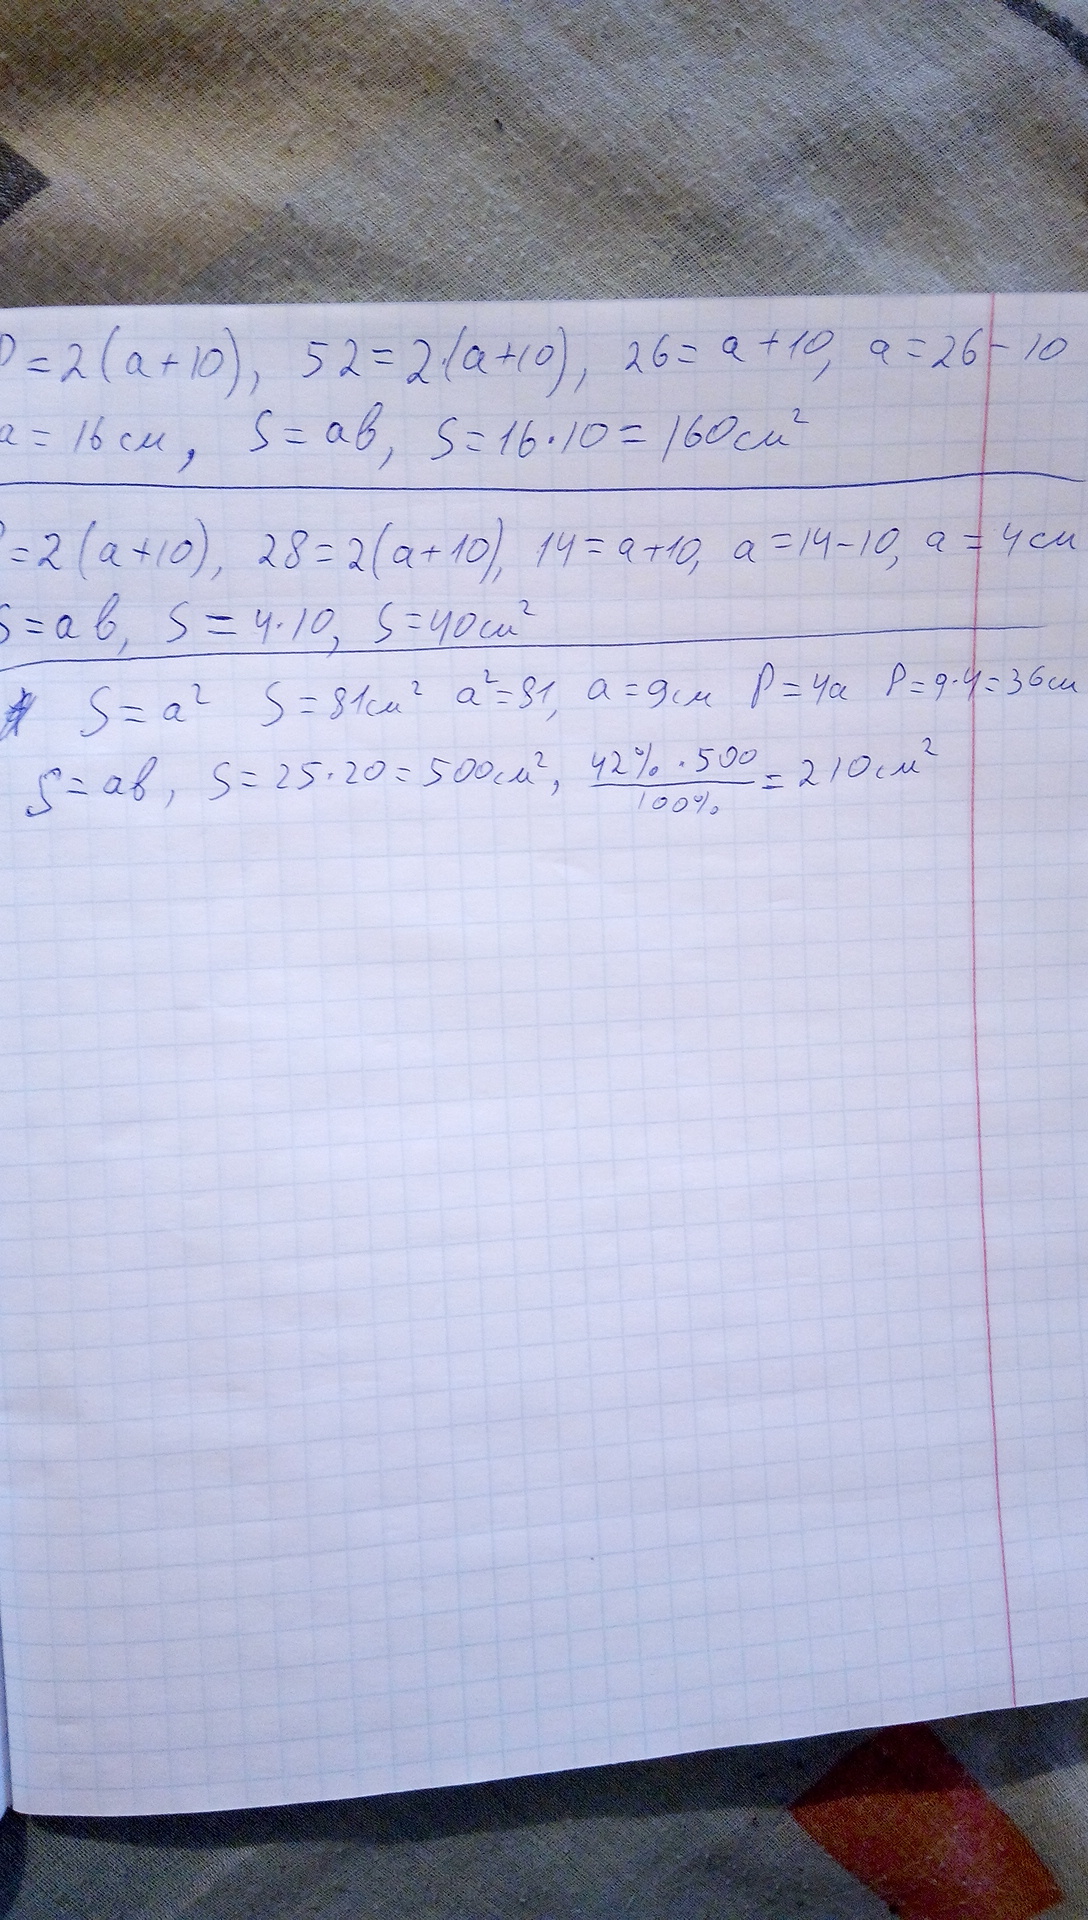 P=2(a+10), 52=2·(a+10), 26=a+10, a=26-10
a=16см, S=ab, S=16·10=160см²
P=2(a+10), 28=2(a+10), 14=a+10, a=14-10, a=4см
S=ab, S=4·10, S=40см²
S=a² S=81см² a²=81, a=9см P=4a P=9·4=36см
S=ab, S=25·20=500см², 42%·500/100%=210см²